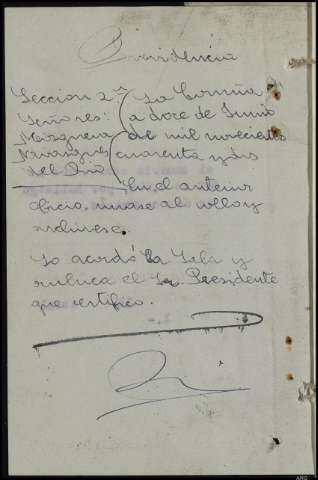 Providencia
Seccion 2ª
Señores:
Mosquera
del Rio
La Coruña
a doce de Junio
de mil novecientos
cuarenta y dos
En el anterior
oficio, unase al rollo y
archivese.
Lo acordó la Sala y
rubrica el Sr. Presidente
que certifico.